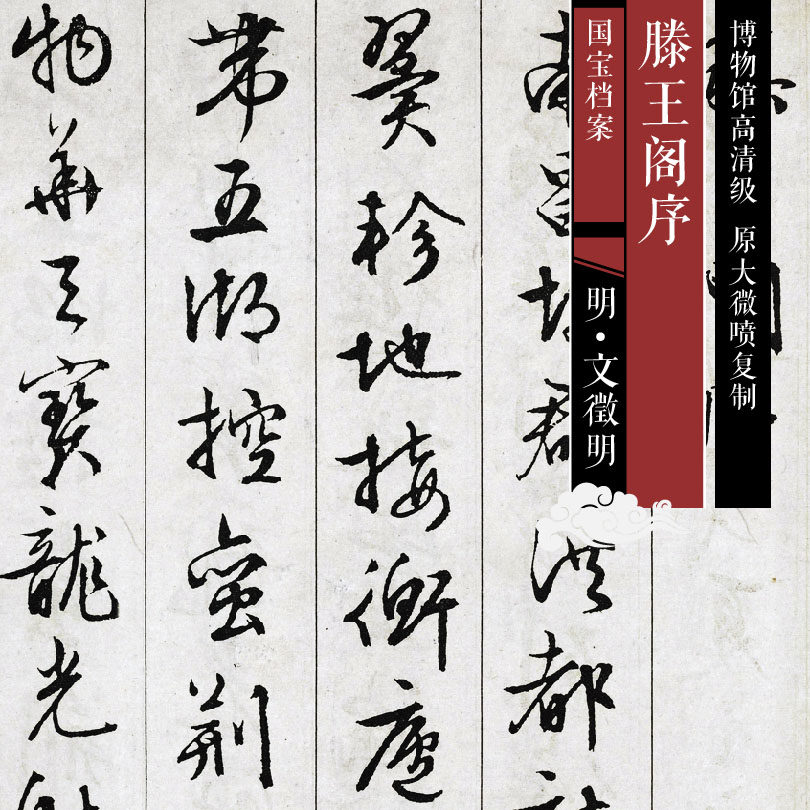 博物馆高清级 原大微喷复制
滕王阁序
国宝档案
明·文徵明
洪都
翼軫地接衡廬
帶五湖控蛮荊
物華天寶龍光